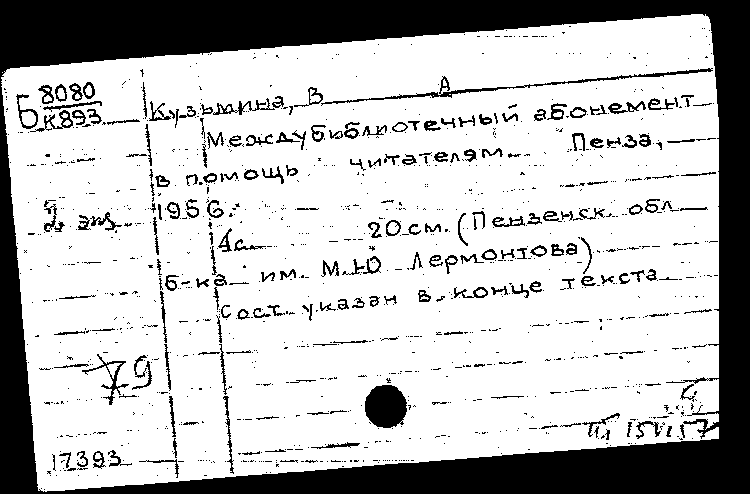 Б 8080
К893
Кузьмина, В А
Междубиблиотечный абонемент
в помощь читателям. Пенза,
1956.
2 экз
4с. 20см. (Пензенск. обл
б-ка им. М.Ю Лермонтова)
Сост. указан в конце текста
79
17393
15 VI 57